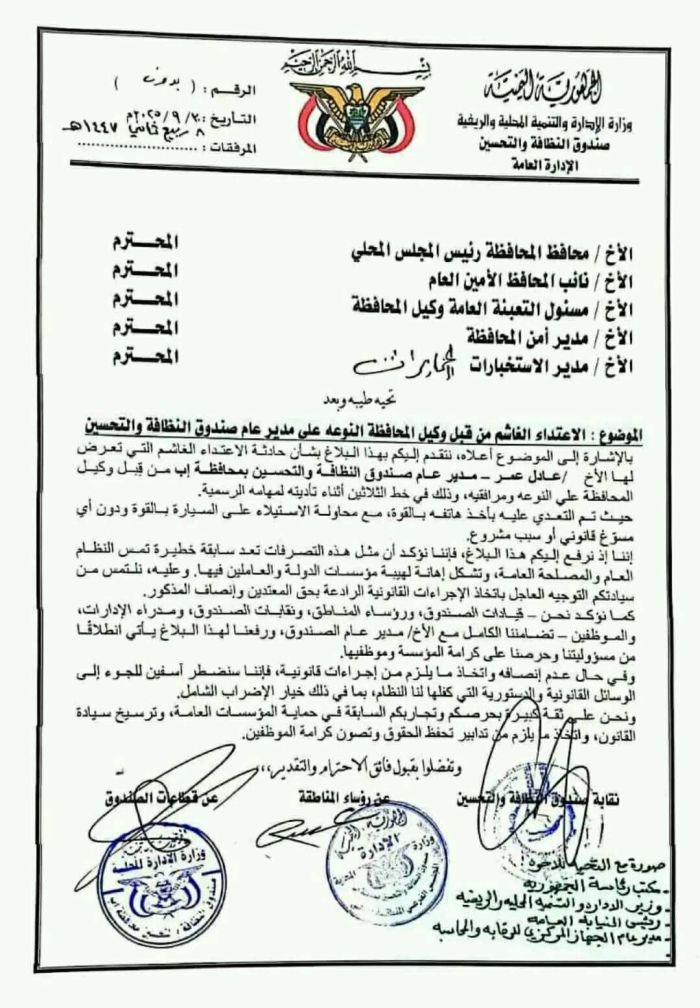 بسم الله الرحمن الرحيم
الجمهورية اليمنية
وزارة الإدارة والتنمية المحلية والريفية
صندوق النظافة والتحسين
الإدارة العامة
الرقم : ( بدون )
التاريخ : ٣٠ / ٩ / ٢٠٢٥م
٨ ربيع ثاني ١٤٤٧هـ
المرفقات :
الأخ / محافظ المحافظة رئيس المجلس المحلي المحـــترم
الأخ / نائب المحافظ الأمين العام المحـــترم
الأخ / مسئول التعبئة العامة وكيل المحافظة المحـــترم
الأخ / مدير أمن المحافظة المحـــترم
الأخ / مدير الاستخبارات المحـــترم
تحيه طيبه وبعد
الموضوع : الاعتداء الغاشم من قبل وكيل المحافظة النوعه على مدير عام صندوق النظافة والتحسين
بالإشارة إلى الموضوع أعلاه، نتقدم إليكم بهذا البلاغ بشأن حادثة الاعتداء الغاشم التي تعرض
لها الأخ /عادل عمر – مدير عام صندوق النظافة والتحسين بمحافظة إب من قبل وكيل
المحافظة علي النوعه ومرافقيه، وذلك في خط الثلاثين أثناء تأديته لمهامه الرسمية.
حيث تم التعدي عليه بأخذ هاتفه بالقوة، مع محاولة الاستيلاء على السيارة بالقوة ودون أي
مسوّغ قانوني أو سبب مشروع.
إننا إذ نرفع إليكم هذا البلاغ، فإننا نؤكد أن مثل هذه التصرفات تعد سابقة خطيرة تمس النظام
العام والمصلحة العامة، وتشكل إهانة لهيبة مؤسسات الدولة والعاملين فيها. وعليه، نلتمس من
سيادتكم التوجيه العاجل باتخاذ الإجراءات القانونية الرادعة بحق المعتدين وإنصاف المذكور.
كما نؤكد نحن – قيادات الصندوق، ورؤساء المناطق، ونقابات الصندوق، ومدراء الإدارات،
والموظفين – تضامننا الكامل مع الأخ/ مدير عام الصندوق، ورفعنا لهذا البلاغ يأتي انطلاقًا
من مسؤوليتنا وحرصنا على كرامة المؤسسة وموظفيها.
وفي حال عدم إنصافه واتخاذ ما يلزم من إجراءات قانونية، فإننا سنضطر آسفين للجوء إلى
الوسائل القانونية والدستورية التي كفلها لنا النظام، بما في ذلك خيار الإضراب الشامل.
ونحن على ثقة كبيرة بحرصكم وتجاربكم السابقة في حماية المؤسسات العامة، وترسيخ سيادة
القانون، واتخاذ ما يلزم من تدابير تحفظ الحقوق وتصون كرامة الموظفين.
وتفضلوا بقبول فائق الاحترام والتقدير،،،
نقابة صندوق النظافة والتحسين عن رؤساء المناطقة عن قطاعات الصندوق
صورة مع التحية للاخوة
- مكتب رئاسة الجمهورية
- وزير الادارة والتنمية المحلية والريفية
- رئيس النيابة العامة
- مدير عام الجهاز المركزي للرقابة والمحاسبة